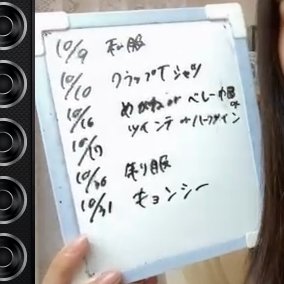 10/9 私服
10/10 クラップTシャツ
10/16 めがねorベレー帽or
ツインテorハーフツイン
10/17
10/30 制服
10/31 キョンシー